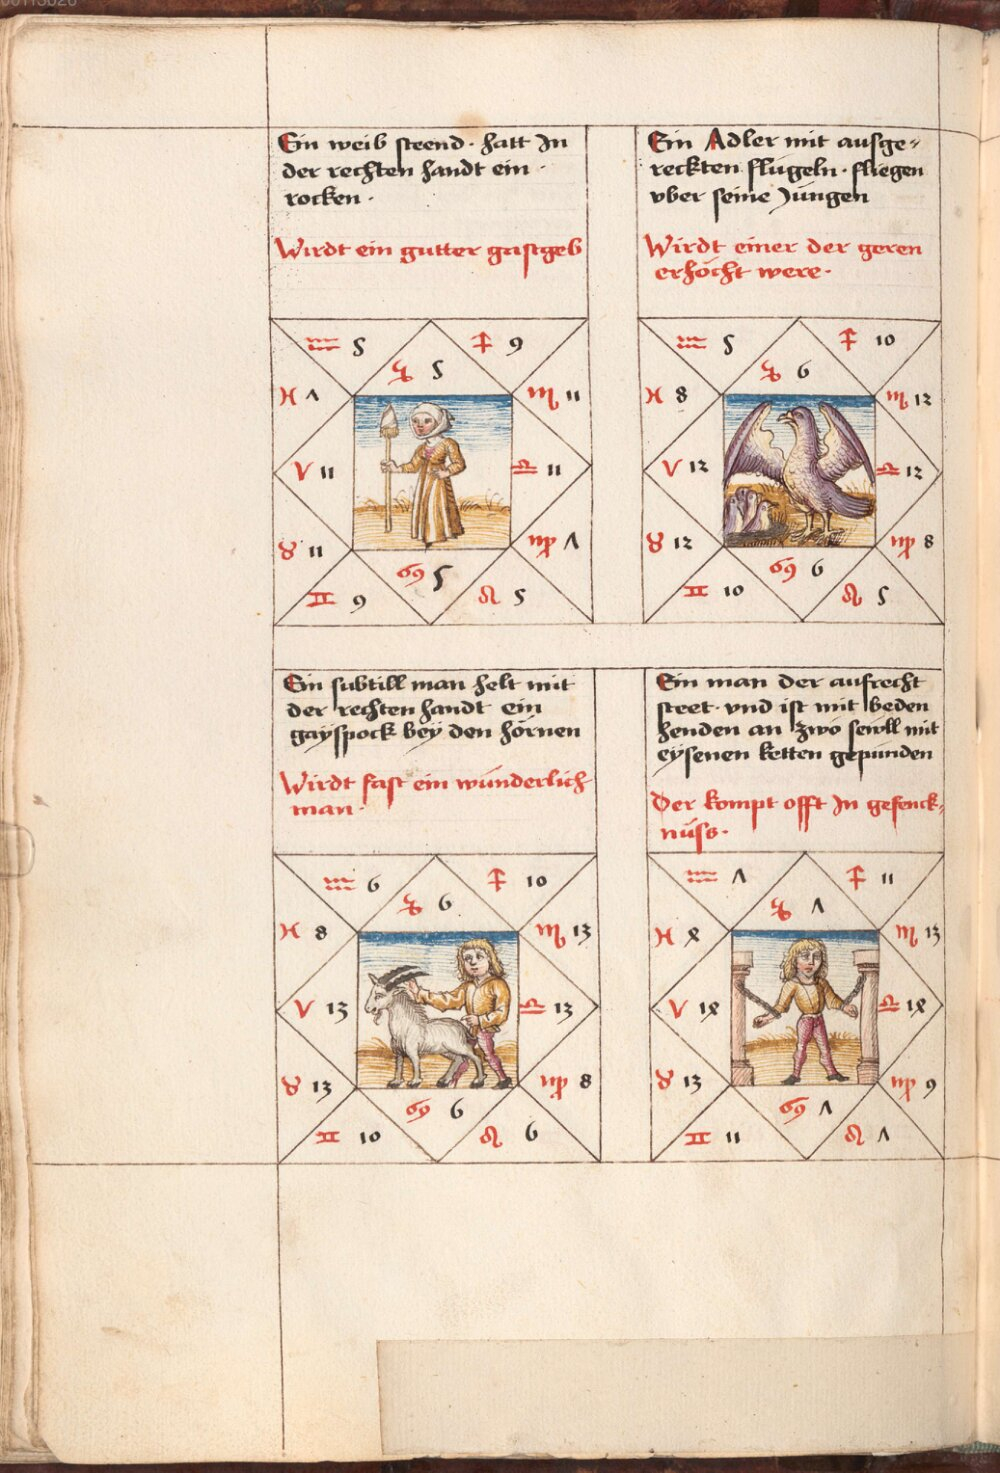 Ein weib steend · hatt In
der rechten handt ein ·
rocken ·
Wirdt ein gutter gastgeb
♒ 5
♐ 9
♑ 5
♓ Λ
♏ 11
♈ 11
♎ 11
♉ 11
♍ Λ
♋ 5
♊ 9
♌ 5
Ein Adler mit ausge-
reckten flůgeln · fliegen
vber seine Jungen
Wirdt einer der geren
erhöcht were ·
♒ 5
♐ 10
♑ 6
♓ 8
♏ 12
♈ 12
♎ 12
♉ 12
♍ 8
♋ 6
♊ 10
♌ 5
Ein subtill man helt mit
der rechten handt ein
gayspock bey den hörnen
Wirdt fast ein wůnderlich
man ·
♒ 6
♐ 10
♑ 6
♓ 8
♏ 13
♈ 13
♎ 13
♉ 13
♍ 8
♋ 6
♊ 10
♌ 6
Ein man der aufrecht
steet · vnd ist mit beden
henden an zwo sewll mit
eysenen ketten gepunden
Der kompt offt In gefenck-
nůss ·
♒ Λ
♐ 11
♑ Λ
♓ 8
♏ 13
♈ 18
♎ 18
♉ 13
♍ 9
♋ Λ
♊ 11
♌ Λ